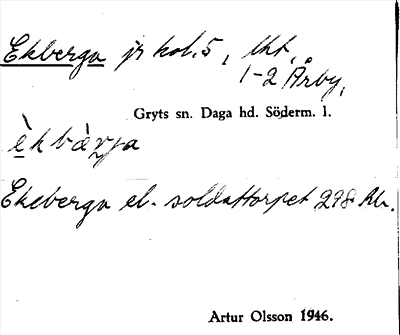 Ekberga jr kol. 5, lht.
1-2 Årby,
Gryts sn. Daga hd. Söderm. l.
èkbàrja
Ekeberga el. soldattorpet 298
Artur Olsson 1946.